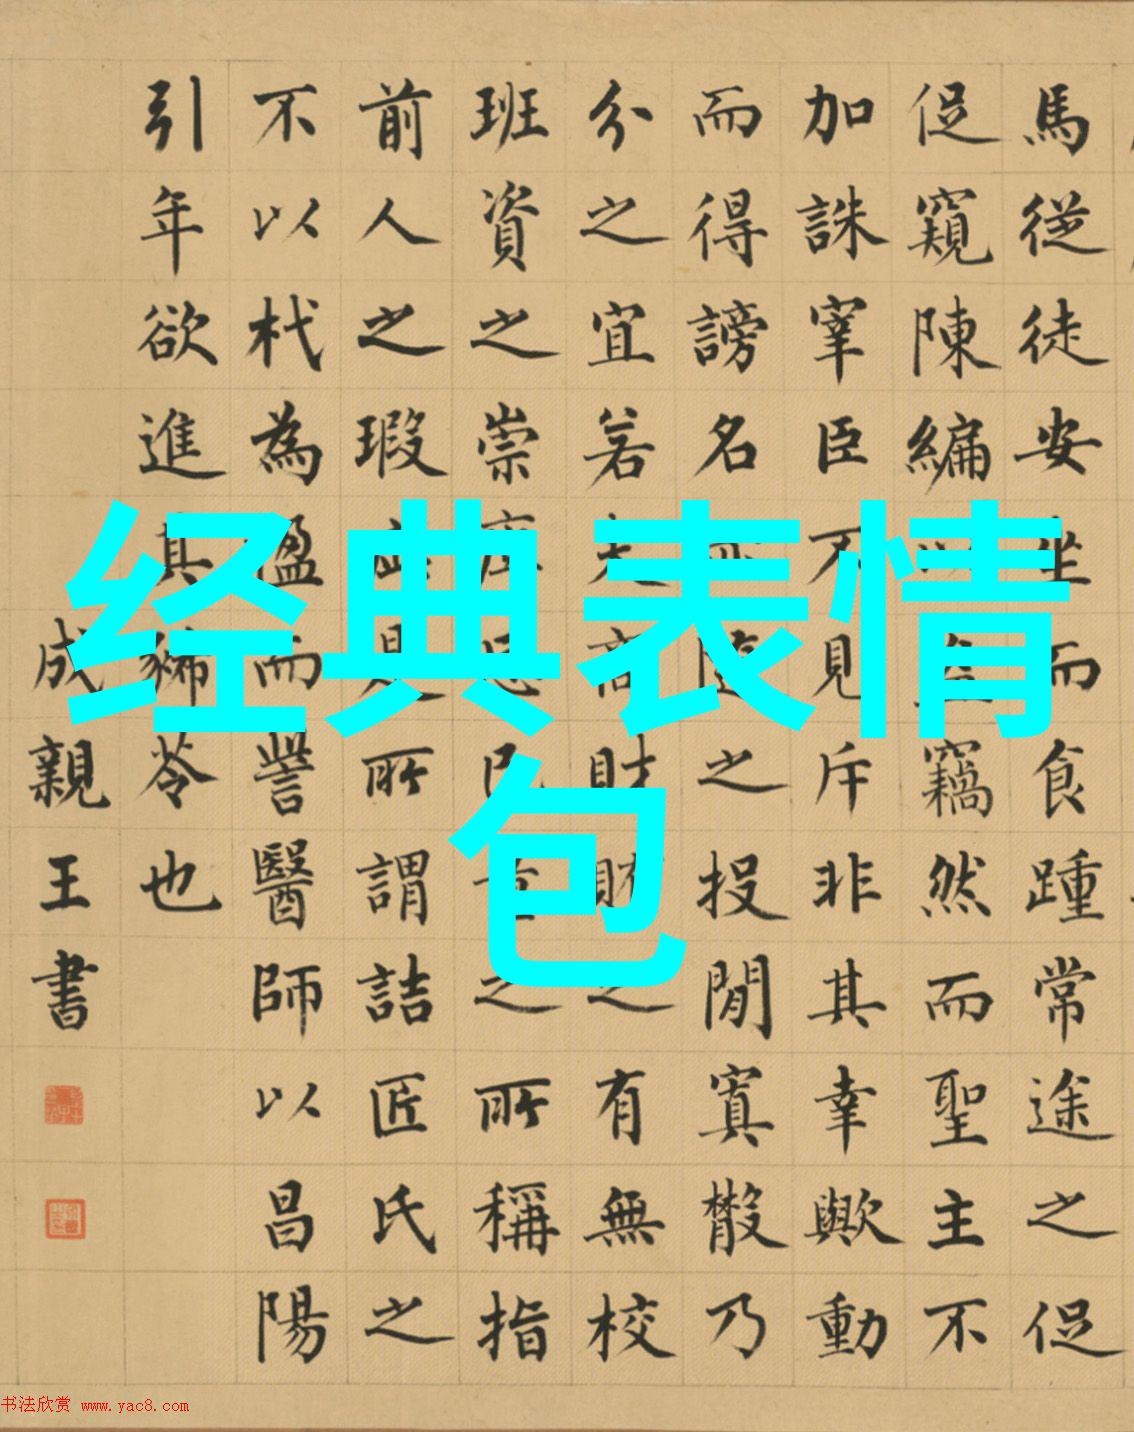 馬從徒安坐而食踵常途之促
促窺陳編以盗竊然而聖主不
加誅宰臣不見斥非其幸歟動
而得謗名亦隨之投閒寘散乃
分之宜若夫商財賄之有無校
班資之崇庳忘己量之所稱指
前人之瑕疵是所謂詰匠氏之
不以杙為楹而訾醫師以昌陽
引年欲進其豨苓也
成親王書
经典表情
包
书法欣赏 www.yac8.com